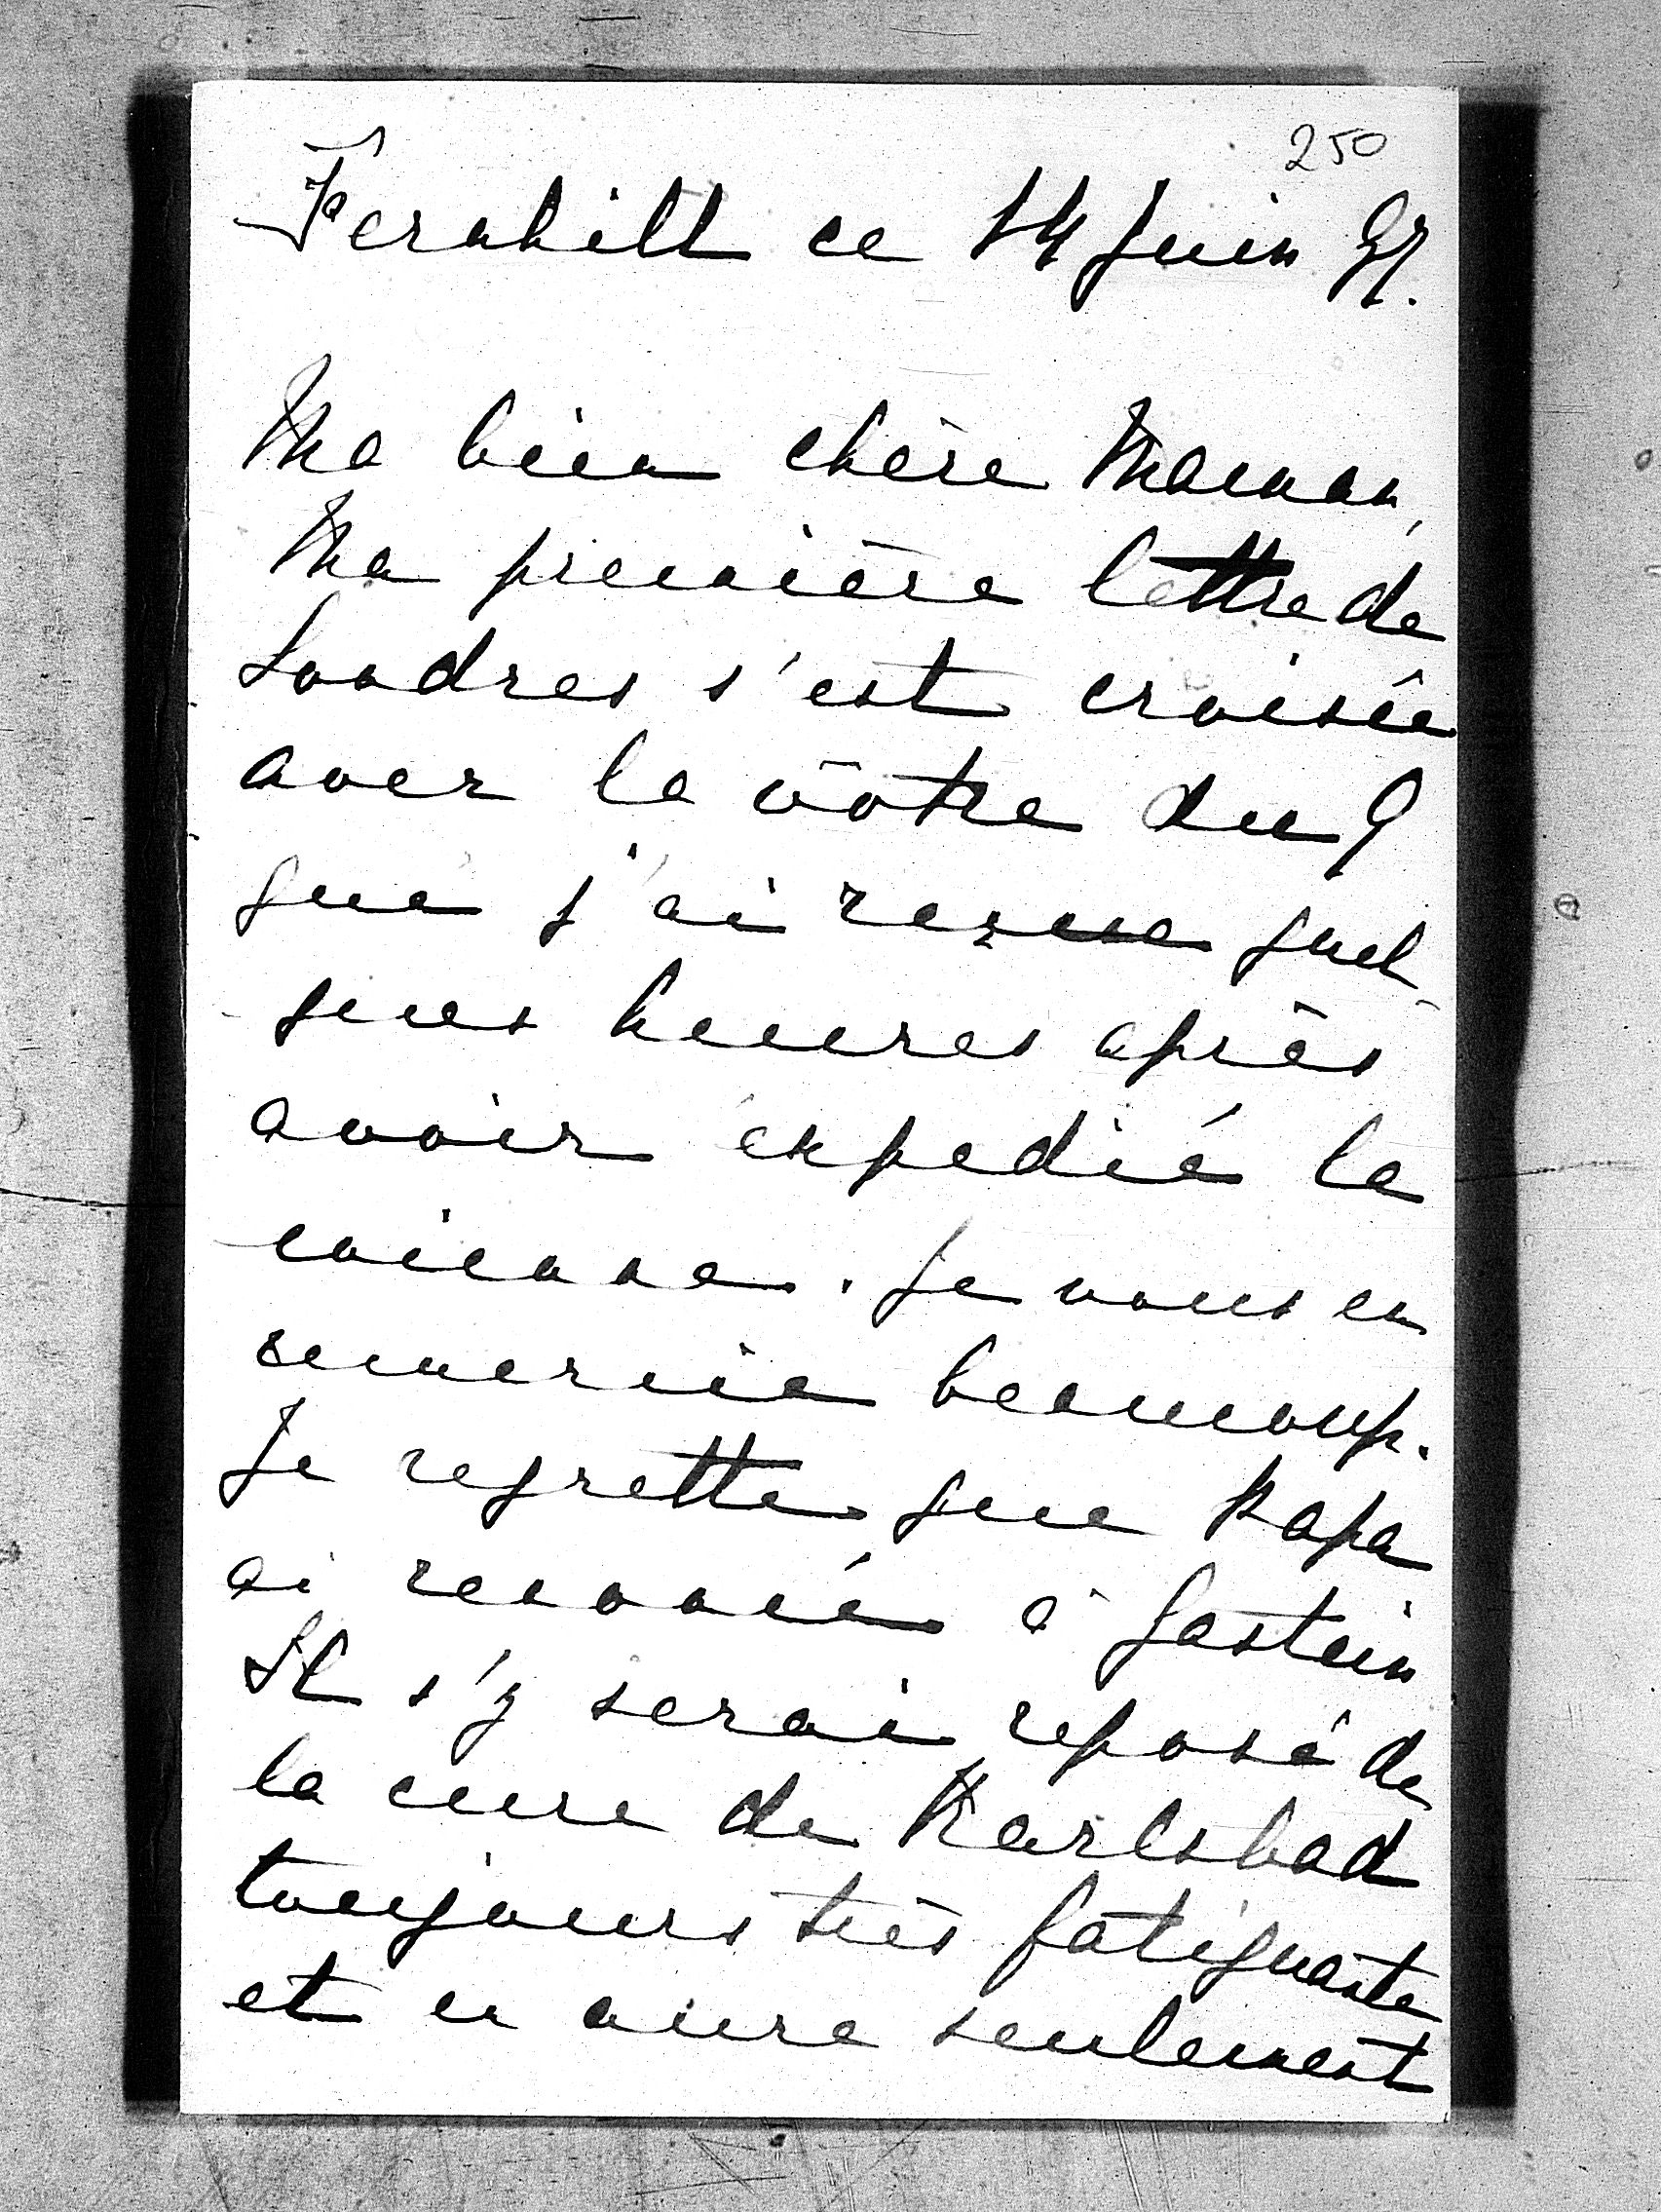 250
Fernhill ce 14 Juin 97.
Ma bien chère Maman,
Ma première lettre de
Londres s'est croisée
avec la vôtre du 9
que j'ai reçue quel-
ques heures après
avoir expedié la
mienne. Je vous en
remercie beaucoup.
Je regrette que Papa
ai renoncé à Gastein
Il s'y serai reposé de
la cure de Karlsbad
toujours très fatiguante
et n aura seulement